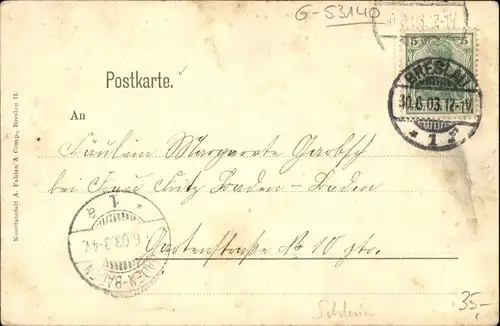 G-53140
5 5
Postkarte.
BRESLAU
30.6.03.12-1N
* 1 *
An
Fräulein Margarete
bei Frau Fritz Baden-Baden
Gartenstraße No 10 ptr.
1
6.03.3-4
BADEN-BADEN
Kunstanstalt A. Fabian & Comp., Breslau II.
35-